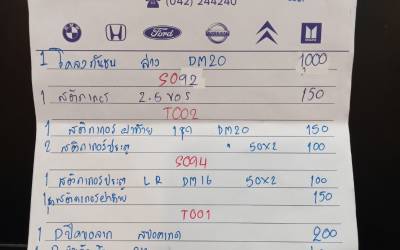 (042) 244240
Ford NISSAN
1 โครงกันชน ล่าง DM20 1,000
SO92
1 สติกาเกอร์ 2.5 VGS 150
TOO2
1 สติกาเกอร์ฝาท้าย 1ชุด DM20 150
2 สติกาเกอร์ประตู " 50x2 100
SO94
1 สติกาเกอร์ประตู LR DM16 50x2 100
1ชุดสติกาเกอร์ฝาท้าย 150
TOO1
200